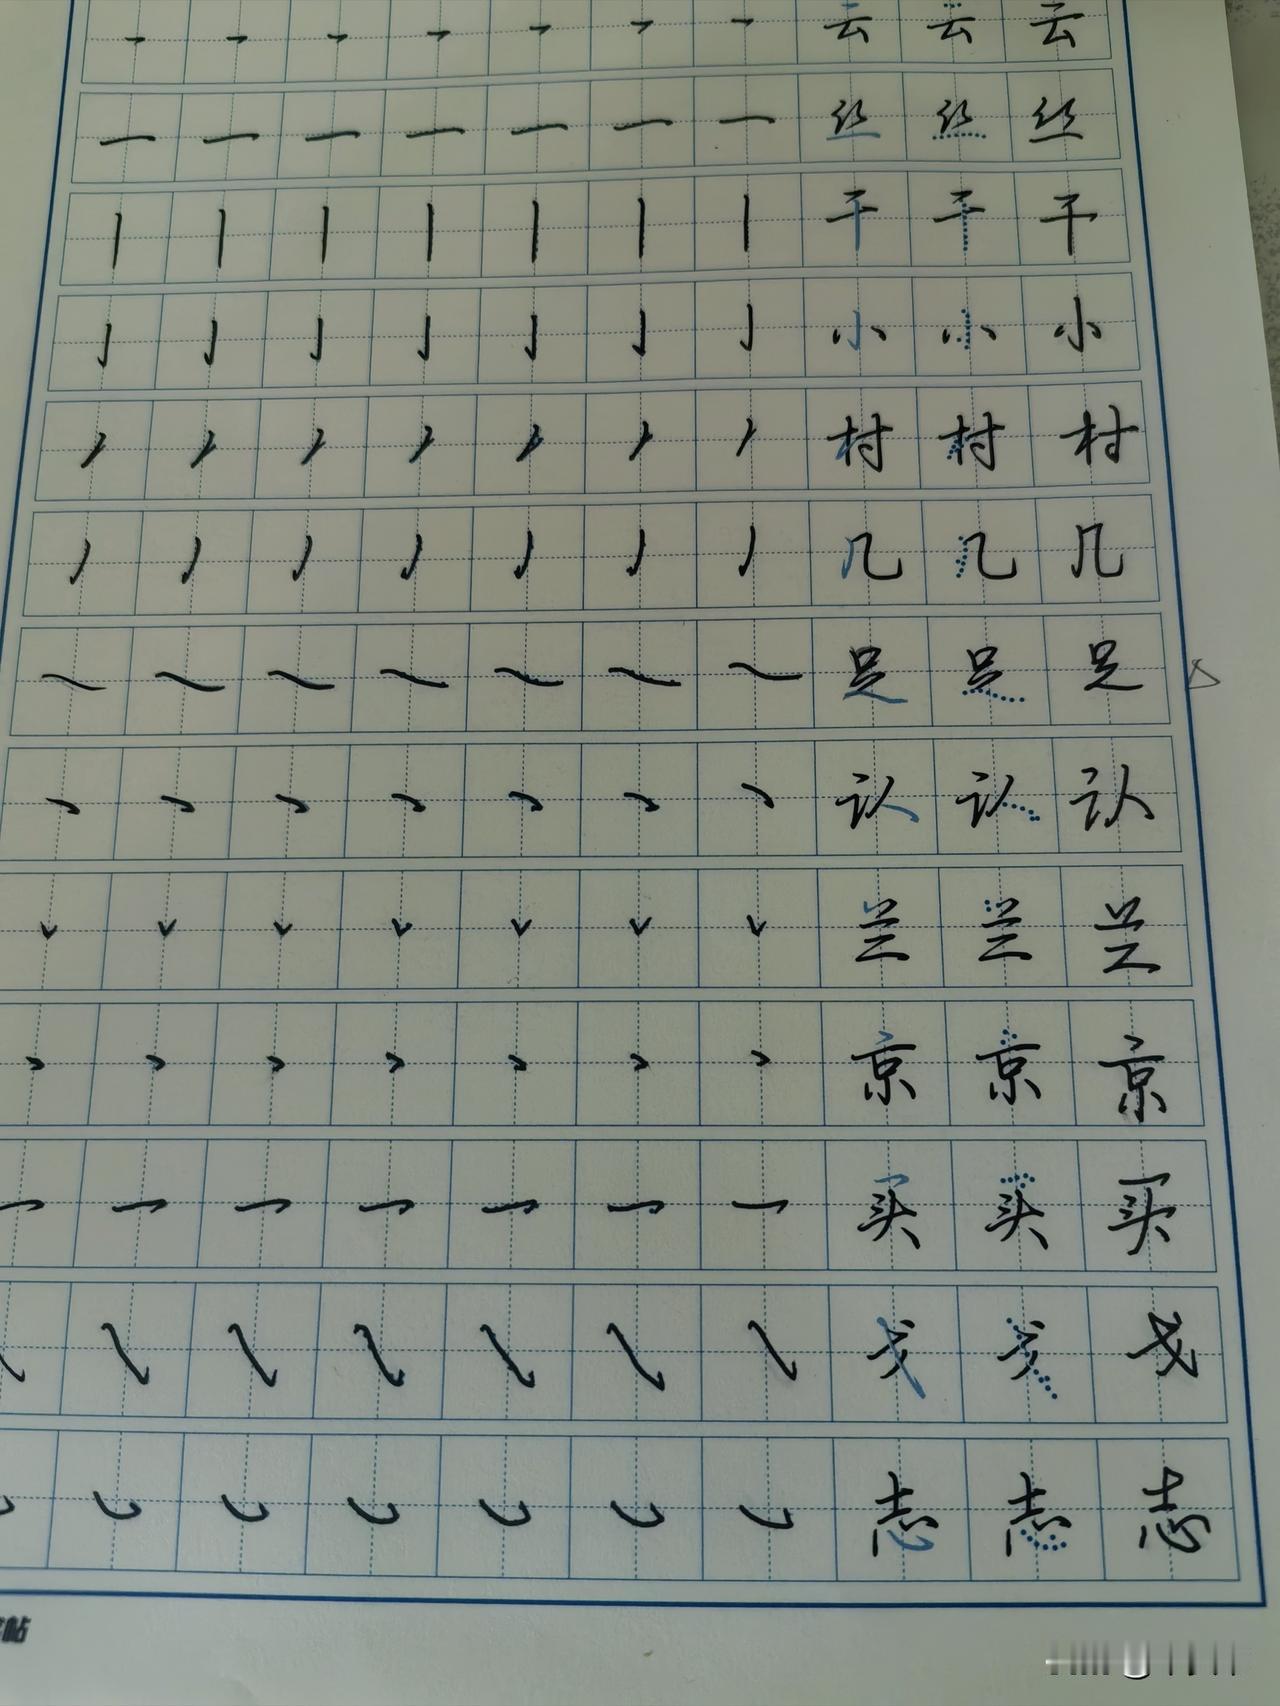 云 云 云
丝 丝 丝
干 干 干
小 小 小
村 村 村
几 几 几
是 是 是
认 认 认
兰 兰 兰
京 京 京
买 买 买
戈 戈 戈
志 志 志
帖